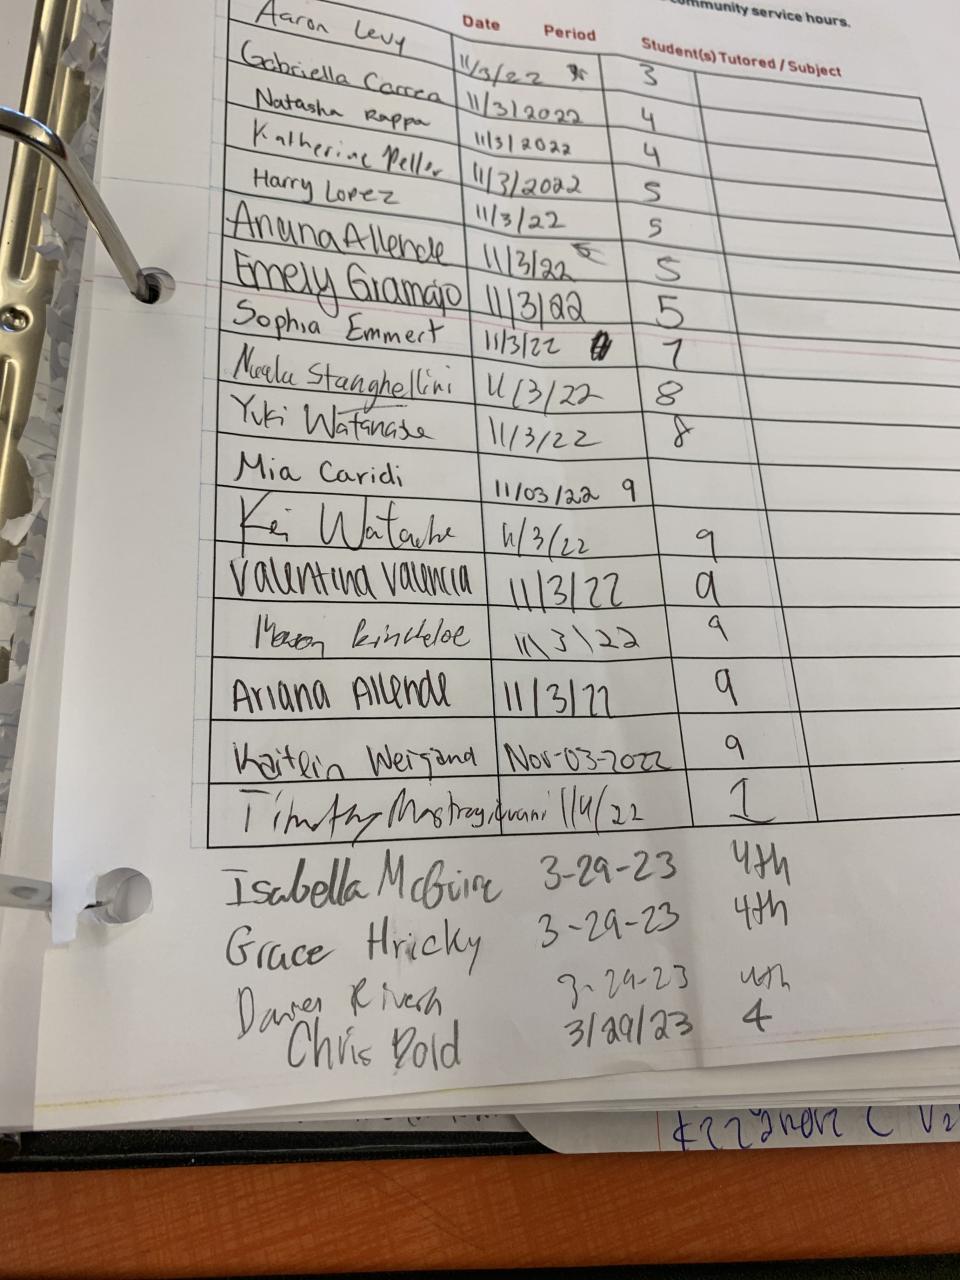 community service hours.
Date Period Student(s) Tutored / Subject
Aaron Levy 11/3/22 3
Gabriella Correa 11/3/2022 4
Natasha Rappa 11/3/2022 4
Katherine 11/3/2022 5
Harry Lopez 11/3/22 5
Ariana Allende 11/3/22 5
Emely Gramajo 11/3/22 5
Sophia Emmert 11/3/22 7
Stanghellini 11/3/22 8
Yuki Watanabe 11/3/22 8
Mia Caridi 11/03/22 9
Kei 11/3/22 9
Valentina Valencia 11/3/22 9
Kincheloe 11\3\22 9
Ariana Allende 11/3/22 9
Kaitlin Weigand Nov-03-2022 9
Timothy 11/4/22 1
Isabella McGuire 3-29-23 4th
Grace Hricky 3-29-23 4th
3-29-23 4th
Chris Dold 3/29/23 4